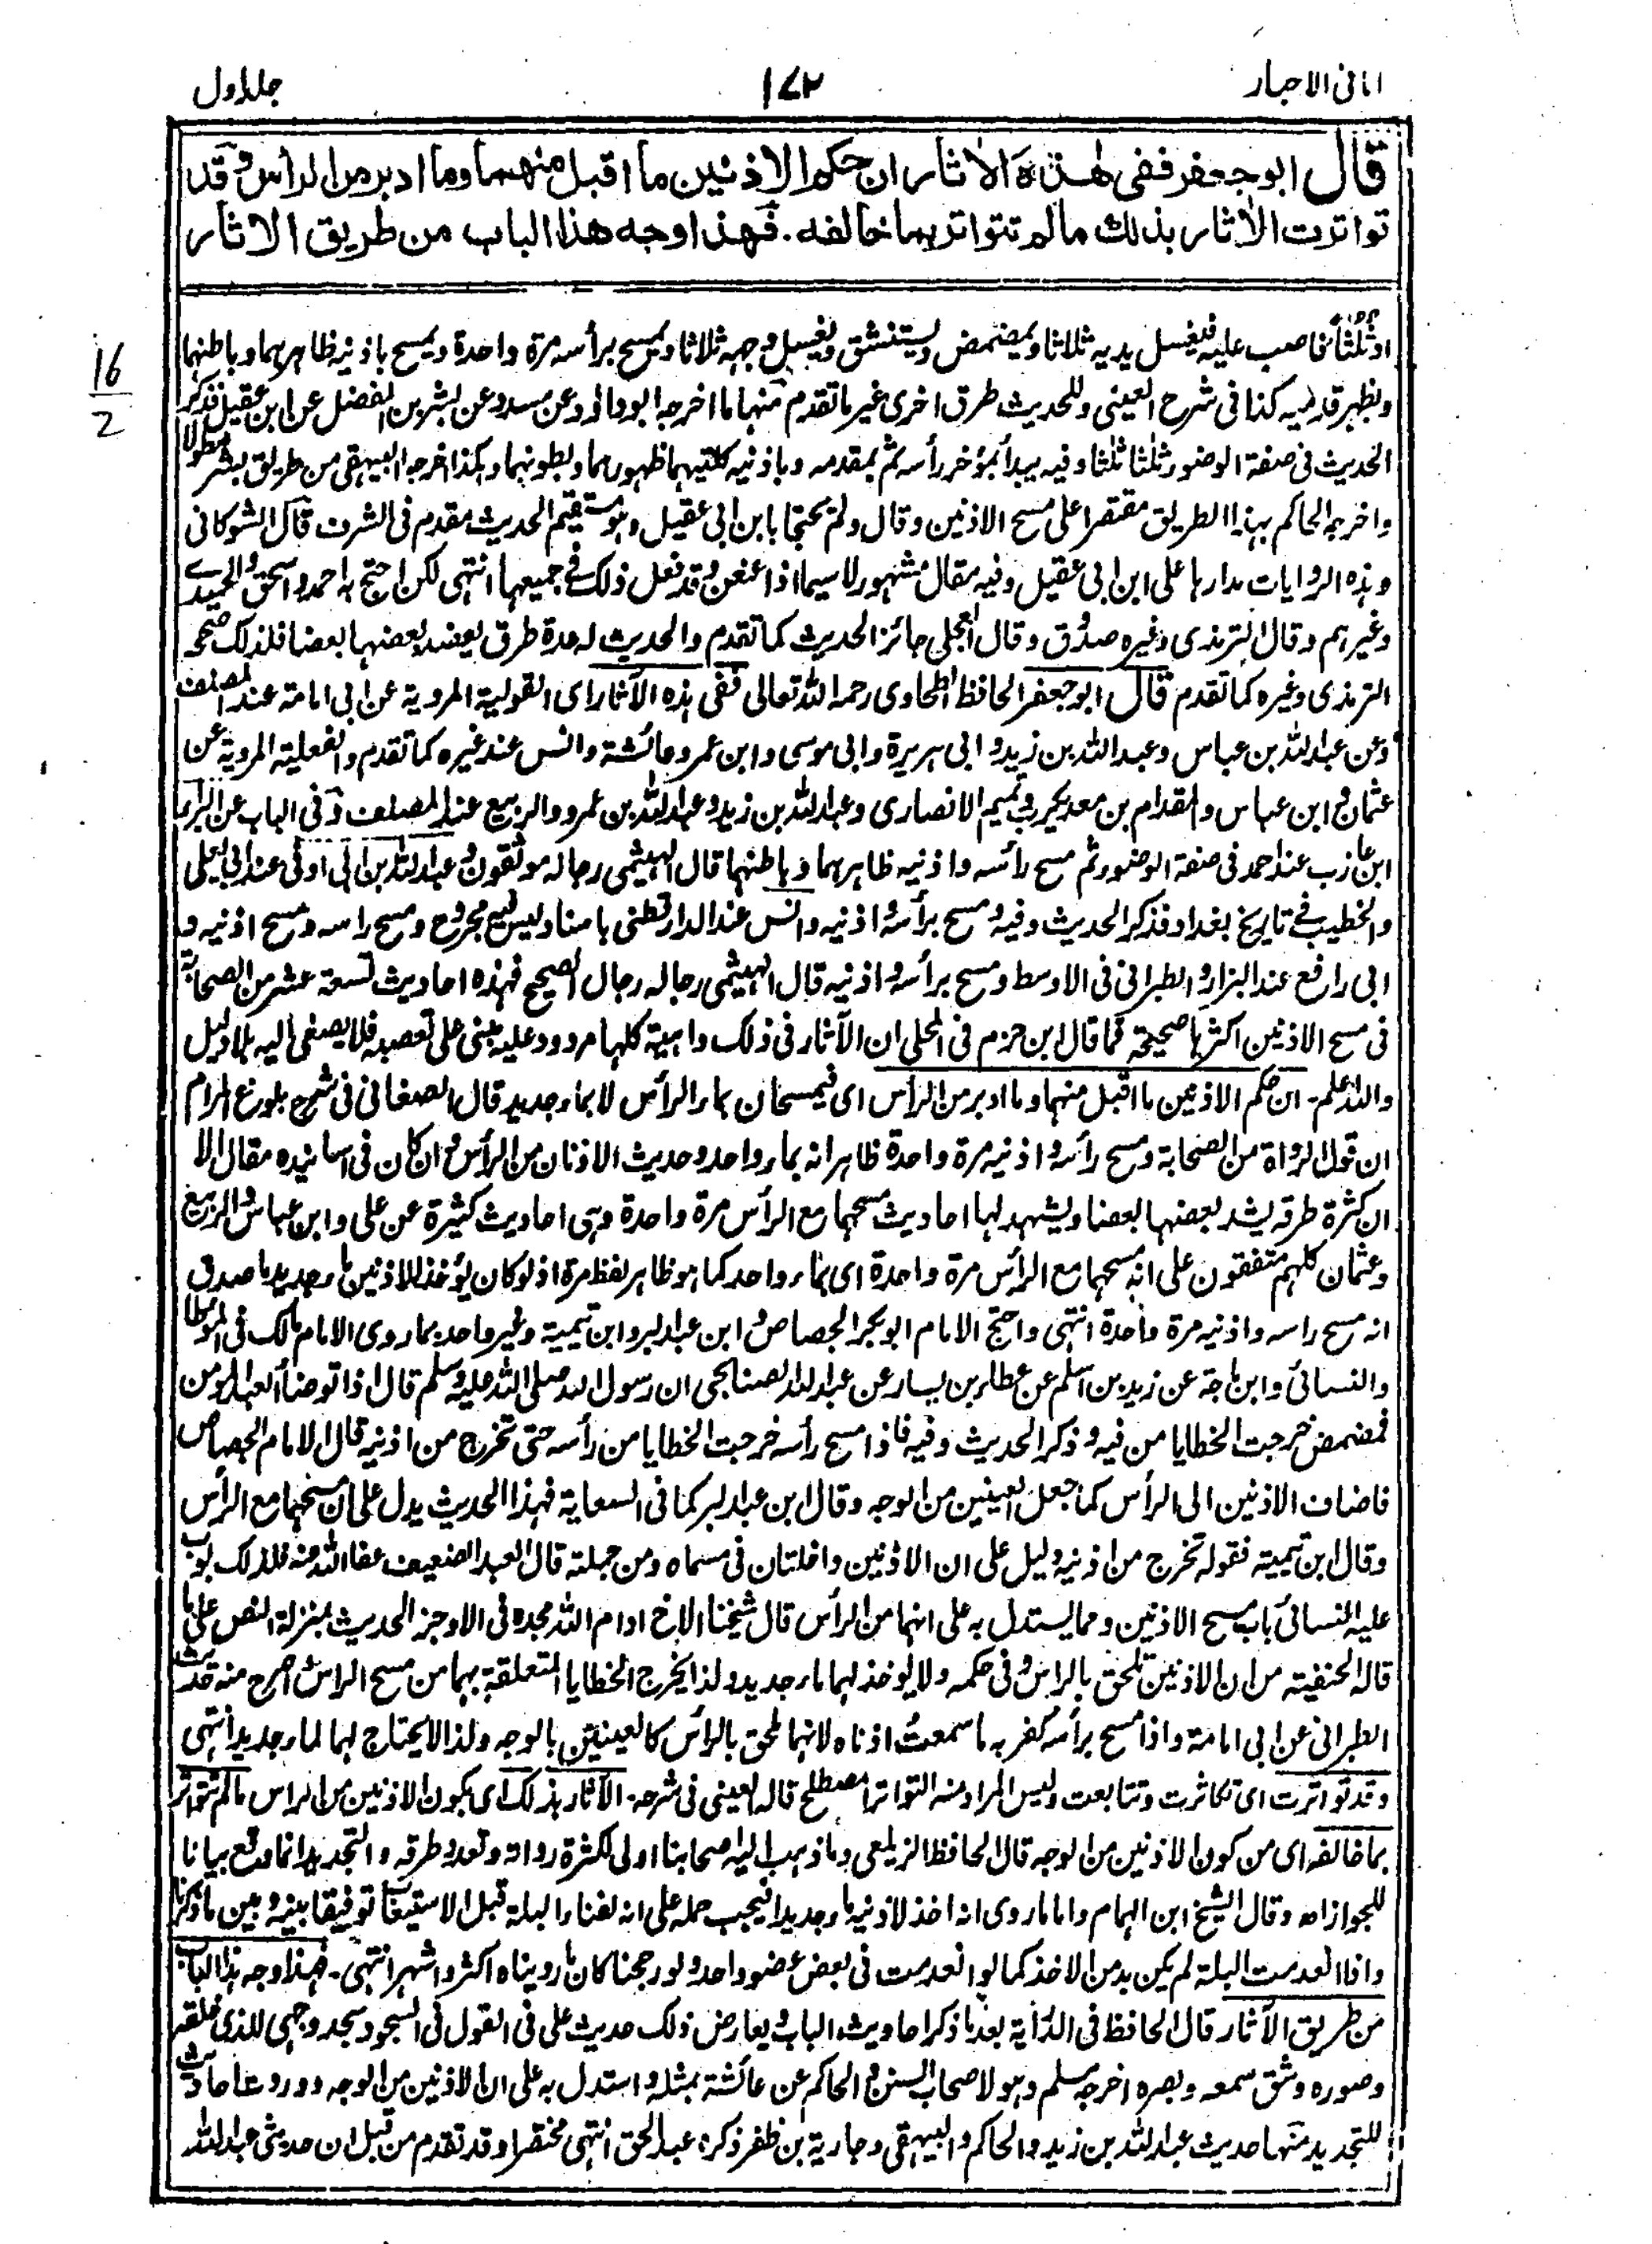 امانی الاحبار
۱۷۲
جلد اول
قال ابو جعفر ففی هذه الاٰثار ان حکم الاذنین ما اقبل منهما وما ادبر من الرأس وقد
تواترت الاٰثار بذلك مالم تتواتر بما خالفه. فهذا وجه هذا الباب من طریق الاٰثار
16
2
او ثلثا فاصب علیه فیغسل یدیه ثلاثا ویمضمض ویستنشق ویغسل وجهه ثلاثا ویمسح برأسه مرة واحدة ویمسح باذنیه ظاهرهما وباطنهما
ویطهر قدمیه کذا فی شرح العینی وللحدیث طرق اخری غیر ما تقدم منها ما اخرجه ابوداؤد عن مسدد عن بشر بن المفضل عن ابن عقیل فذکر
الحدیث فی صفة الوضوء ثلثا ثلثا وفیه یبدأ بمؤخر رأسه ثم بمقدمه وباذنیه کلتیهما ظهورهما وبطونهما وهکذا اخرجه البیهقی من طریق بشر مطولا
واخرجه الحاکم بهذا الطریق مقتصرا علی مسح الاذنین وقال ولم یحتجا بابن ابی عقیل وهو مستقیم الحدیث مقدم فی الشرف قال الشوکانی
وهذه الروایات مدارها علی ابن ابی عقیل وفیه مقال مشهور لا سیما اذا عنعن وقد فعل ذلک فی جمیعها انتهی لکن احتج به احمد واسحق والحمیدی
وغیرهم وقال الترمذی وغیره صدوق وقال العجلی جائز الحدیث کما تقدم والحدیث له عدة طرق یعضد بعضها بعضا فلذلک صححه
الترمذی وغیره کما تقدم قال ابو جعفر الحافظ الطحاوی رحمه الله تعالی ففی هذه الآثار ای القولیة المرویة عن ابی امامة عند المصنف
وعن عبدالله بن عباس وعبدالله بن زید وابی هریرة وابی موسی وابن عمر وعائشة وانس عند غیره کما تقدم والفعلیة المرویة عن
عثمان وابن عباس والمقدام بن معدیکرب وتمیم الانصاری وعبدالله بن زید وعبدالله بن عمرو والربیع عند المصنف وفی الباب عن البراء
ابن عازب عند احمد فی صفة الوضوء ثم مسح رأسه واذنیه ظاهرهما وباطنهما قال الهیثمی رجاله موثقون وعبدالله بن ابی اوفی عند ابی یعلی
والخطیب فی تاریخ بغداد فذکر الحدیث وفیه ومسح برأسه واذنیه وانس عند الدارقطنی باسناد لیس فیه مجروح ومسح راسه ومسح اذنیه و
ابی رافع عند البزار والطبرانی فی الاوسط ومسح برأسه واذنیه قال الهیثمی رجاله رجال الصحیح فهذه احادیث تسعة عشر من الصحابة
فی مسح الاذنین اکثرها صحیحة فما قال ابن حزم فی المحلی ان الآثار فی ذلک واهیة کلها مردود علیه مبنی علی تعصبه فلا یصغی الیه بلا دلیل
والله اعلم۔ ان حکم الاذنین ما اقبل منهما وما ادبر من الرأس ای فیمسحان بماء الرأس لا بماء جدید قال الصنعانی فی شرح بلوغ المرام
ان قول الرواة من الصحابة ومسح رأسه واذنیه مرة واحدة ظاهر انه بماء واحد وحدیث الاذنان من الرأس وان کان فی اسانیده مقال الا
ان کثرة طرقه یشد بعضها بعضا ویشهد لها احادیث مسحهما مع الرأس مرة واحدة وهی احادیث کثیرة عن علی وابن عباس والربیع
وعثمان کلهم متفقون علی انه مسحهما مع الرأس مرة واحدة ای بماء واحد کما هو ظاهر لفظ مرة اذ لو کان یؤخذ للاذنین ماء جدید ما صدق
انه مسح راسه واذنیه مرة واحدة انتهی واحتج الامام ابوبکر الجصاص وابن عبدالبر وابن تیمیة وغیر واحد بما روی الامام مالک فی الموطا
والنسائی وابن ماجة عن زید بن اسلم عن عطاء بن یسار عن عبدالله الصنابحی ان رسول الله صلی الله علیه وسلم قال اذا توضأ العبد المومن
فمضمض خرجت الخطایا من فیه وذکر الحدیث وفیه فاذا مسح رأسه خرجت الخطایا من رأسه حتی تخرج من اذنیه قال الامام الجصاص
فاضاف الاذنین الی الرأس کما جعل العینین من الوجه وقال ابن عبدالبر کما فی السعایة فهذا الحدیث یدل علی ان مسحهما مع الرأس
وقال ابن تیمیة فقوله تخرج من اذنیه دلیل علی ان الاذنین داخلتان فی مسماه ومن جملته قال العبد الضعیف عفا الله عنه فلذلک بوب
علیه النسائی باب مسح الاذنین ومما یستدل به علی انهما من الرأس قال شیخنا الاخ ادام الله مجده فی الاوجز الحدیث بمنزلة النص علی ما
قاله الحنفیة من ان الاذنین تلحق بالراس وفی حکمه ولا یوخذ لهما ماء جدید ولذا یخرج الخطایا المتعلقة بهما من مسح الراس اصرح منه حدیث
الطبرانی عن ابی امامة واذا مسح برأسه کفر به ما سمعت اذناه لانهما تلحق بالرأس کالعینین بالوجه ولذا لا یحتاج لهما لماء جدید انتهی
وقد تواترت ای تکاثرت وتتابعت ولیس المراد منه التواتر المصطلح قاله العینی فی شرحه۔ الآثار بذلک ای بکون الاذنین من الراس مالم تتواتر
بما خالفه ای من کون الاذنین من الوجه قال الحافظ الزیلعی وما ذهب الیه اصحابنا اولی لکثرة رواته وتعدد طرقه والتجدید انما وقع بیانا
للجواز اه وقال الشیخ ابن الهمام واما ما روی انه اخذ لاذنیه ماء جدیدا فیجب حمله علی انه لفناء البلة قبل الاستیعاب توفیقا بینه وبین ما ذکرنا
واذا انعدمت البلة لم یکن بد من الاخذ کما لو انعدمت فی بعض عضو واحد ولو رجحنا کان ما رویناه اکثر واشهر انتهی۔ فهذا وجه هذا الباب
من طریق الآثار قال الحافظ فی الدرایة بعد ما ذکر احادیث الباب ویعارض ذلک حدیث علی فی القول فی السجود سجد وجهی للذی خلقه
وصوره وشق سمعه وبصره اخرجه مسلم وهو لاصحاب السنن والحاکم عن عائشة بمثله واستدل به علی ان الاذنین من الوجه وورد احادیث
للتجدید منها حدیث عبدالله بن زید والحاکم والبیهقی وجاریة بن ظفر ذکره عبدالحق انتهی مختصرا وقد تقدم من قبل ان حدیثی عبدالله